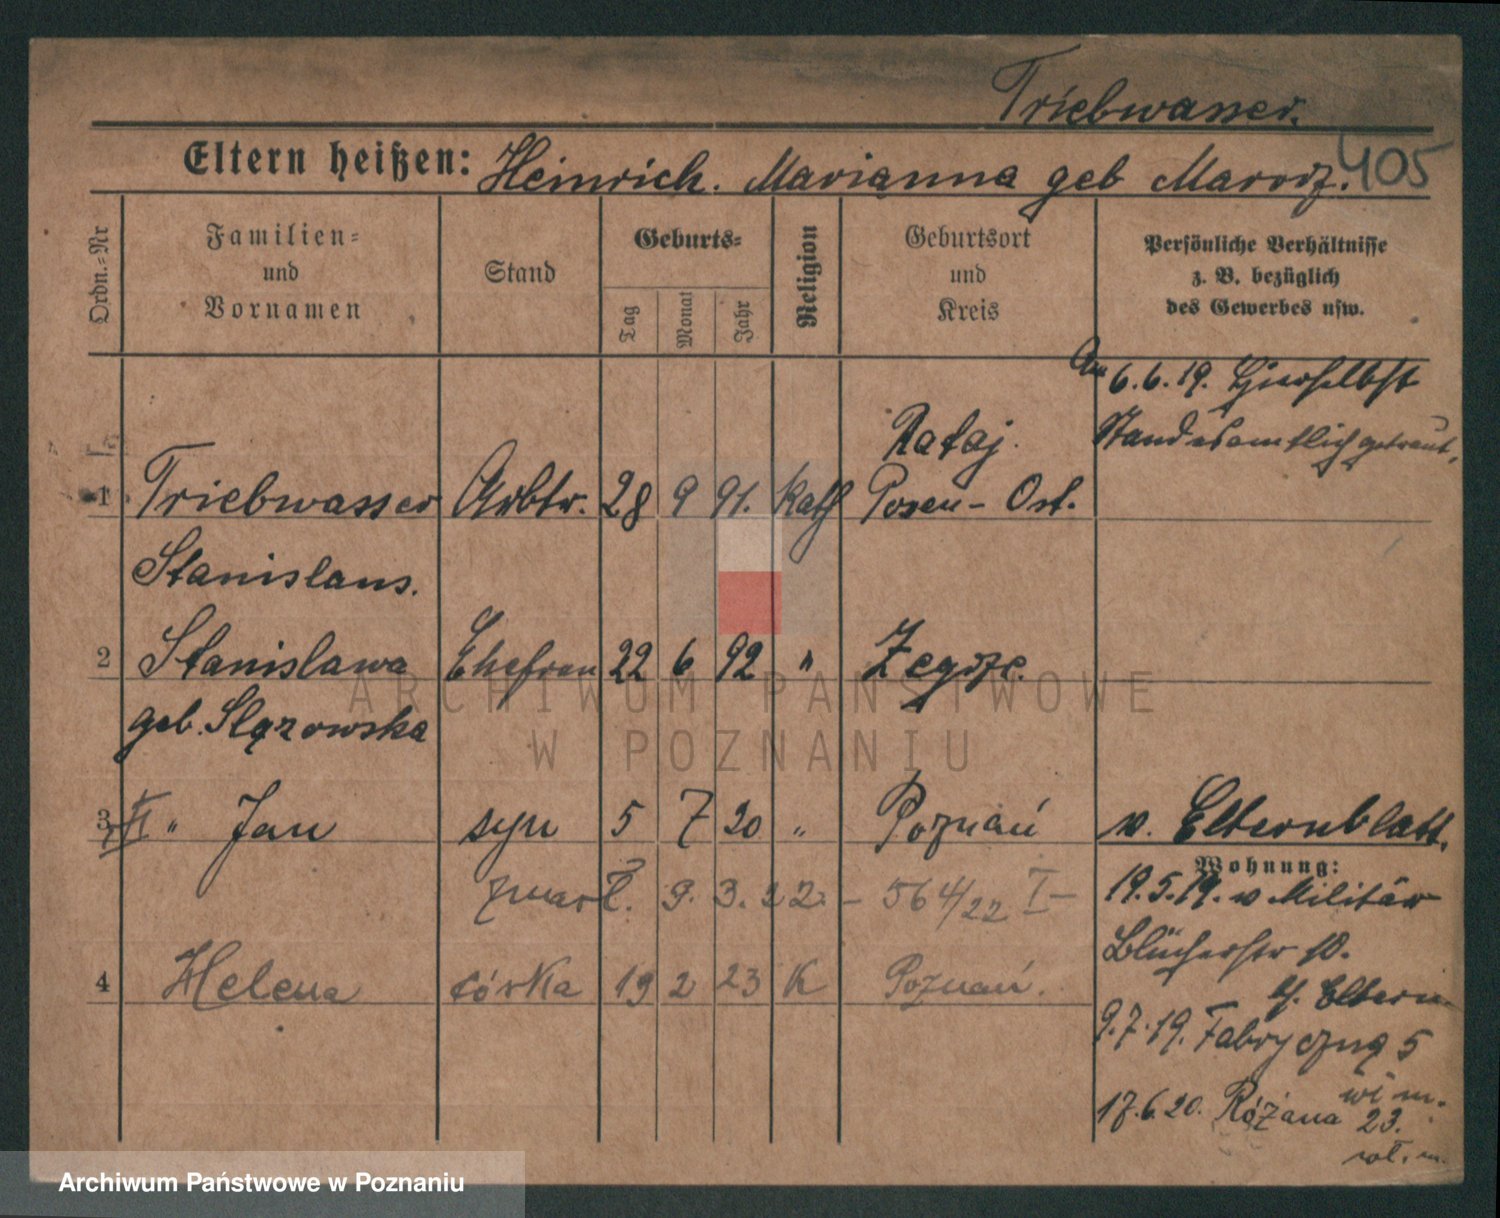 Triebwasser.
Eltern heißen: Heinrich. Marianna geb 405
Ordn.=Nr
Familien=
und
Vornamen
Stand
Geburts=
Tag
Monat
Jahr
Religion
Geburtsort
und
Kreis
Persönliche Verhältnisse
z. B. bezüglich
des Gewerbes usw.
Am 6.6.19. Hierselbst
Standesamtlich getraut.
Rataj.
1 Triebwasser Arbtr. 28 9 91. Kath Posen - Ost.
Stanislaus.
2 Stanislawa Ehefrau 22 6 92 " Zegrze.
geb. Slązowska
3 " Jan syn 5 7 20 " Poznań v. Elternblatt.
Wohnung:
zmarł. 9. 3. 22. - 564/22 I -
19.5.19. v Militär
Blücherstr 10.
4 Helena córka 19 2 23 K Poznań.
b. Eltern
9.7.19. Fabryczną 5
17.6.20. Różana 23.
ARCHIWUM PAŃSTWOWE
W POZNANIU
Archiwum Państwowe w Poznaniu